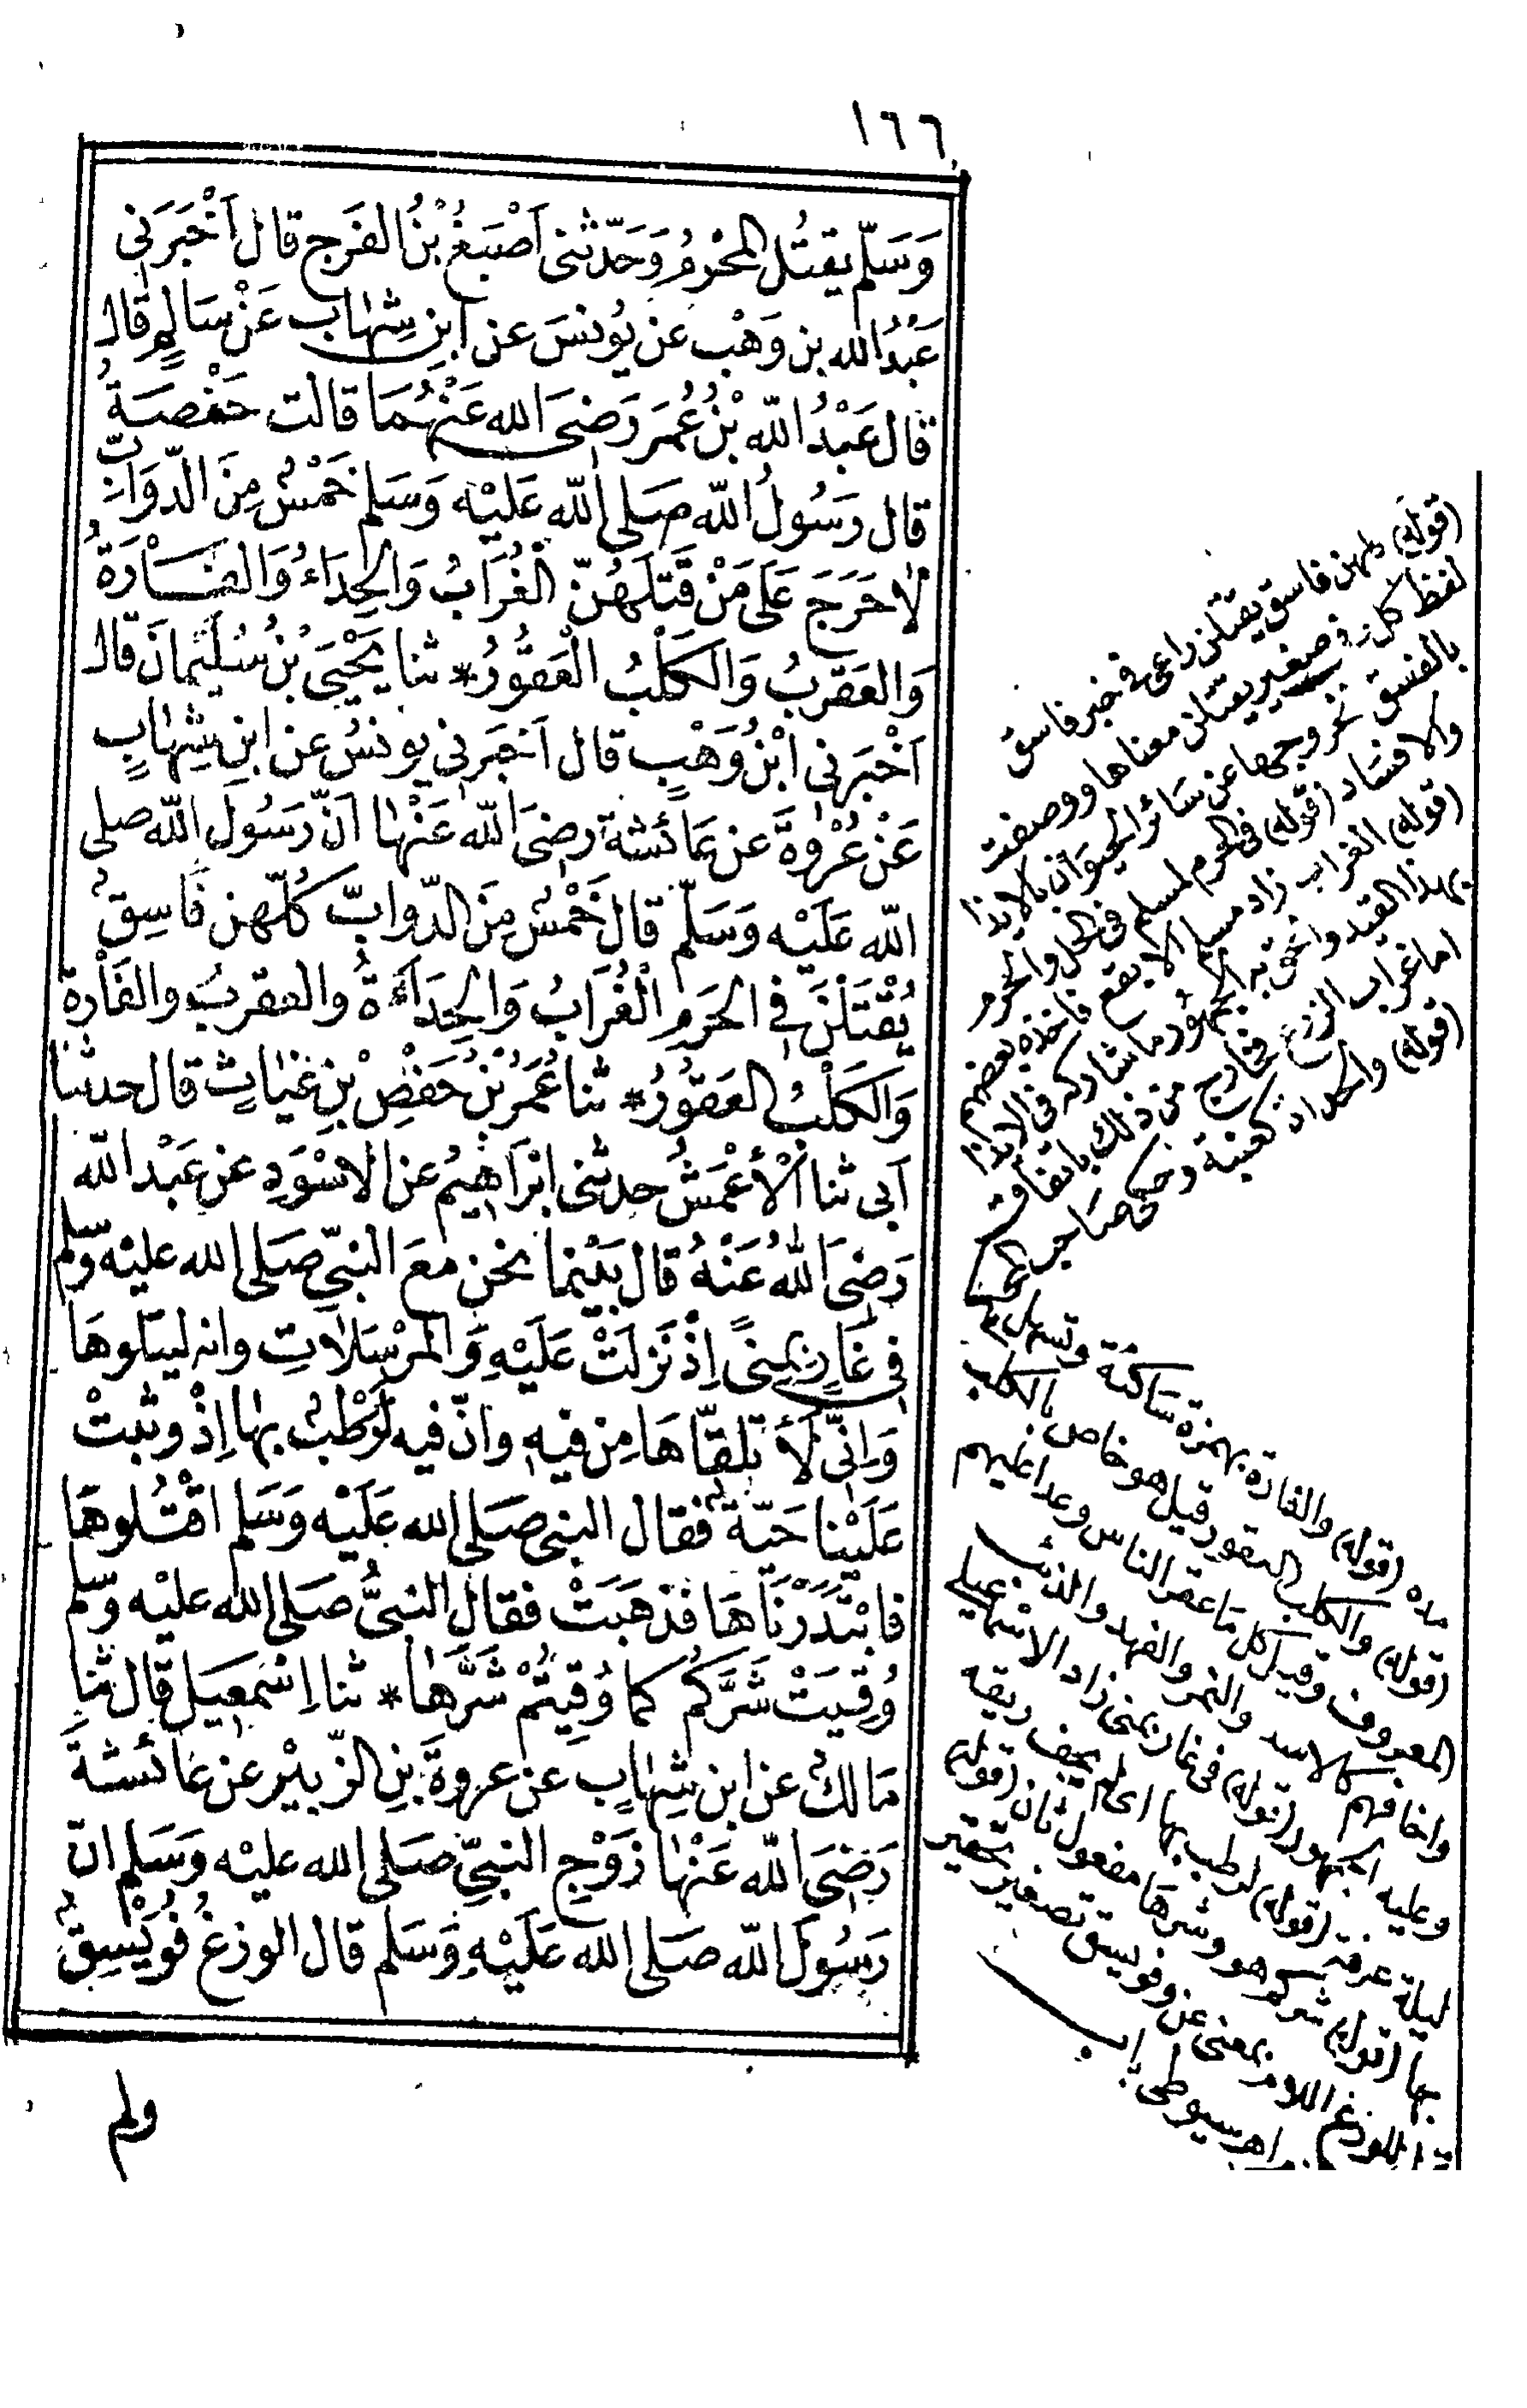 ١٦٦
وَسَلّم يقتُل المحْرِمُ وَحَدّثنى اَصْبَغُ بْنُ الفَرَج قال اَخْبَرَنى
عَبْدُ الله بن وَهْب عن يُونسَ عن ابن شِهَاب عَنْ سَالِمٍ قال
قال عَبْدُ اللّه بْنُ عُمَر رَضىَ الله عَنْهُمَا قالت حَفْصَةُ
قال رَسُولُ اللّه صَلى اللّه عَلَيْه وَسَلم خَمْسٌ مِنَ الدّوَابّ
لاحَرَجَ عَلَى مَنْ قَتَلَهُنّ الغُرَابُ وَالحِدَاءُ وَالفَارَةُ
وَالعَقرَبُ وَالكَلْبُ العَقُورُ * ثنا يَحْيَى بْنُ سُلَيْمَانَ قال
اَخْبَرَنى ابْنُ وَهْبٍ قال اَخبَرَنى يونسُ عن ابنِ شِهَابٍ
عَنْ عُرْوَةَ عن عَائشة رضىَ اللّه عَنْهَا اَنّ رَسُولَ اللّه صلى
اللّه عَلَيْه وَسَلّم قال خَمْسٌ مِنَ الدّوابّ كُلّهن فَاسِقٌ
يُقْتَلْنَ فى الحَرَمِ الْغُرَابُ وَالحِدَاَةُ والعقربُ والفَأْرة
وَالكَلْبُ العَقُورُ * ثنا عُمَرُ بْنُ حَفْصِ بْنِ غِيَاثٍ قال حدثنا
اَبى ثنا الْأَعْمَشُ حدثنى ابْرَاهِيمُ عن الاسْوَدِ عن عَبْد اللّه
رَضىَ اللهُ عَنْهُ قال بَيْنما نحْن معَ النبىّ صَلى الله عليْه وسّلم
فى غَارٍ بِمِنىً اِذْ نَزَلَتْ عَلَيْهِ وَالمرْسَلاَتِ وانه ليتلوهَا
وَانِّى لَأَتلقّاهَا مِنْ فيهِ وانّ فيه لَرَطْبٌ بها اِذْ وثبتْ
عَلَيْنا حَيّةٌ فقال النبى صَلى الله عَلَيْه وَسَلم اقْتُلوهَا
فابْتَدَرْنَاهَا فذهَبَتْ فقال النبىُّ صَلى الله عليْه وسّلم
وُقِيَتْ شَرَّكُم كما وُقِيتُمْ شَرَّهَا * ثنا اِسْمعِيل قال ثنا
مَالكٌ عن ابن شِهَابٍ عن عروةَ بنِ الزّبيْر عن عَائشةَ
رَضىَ اللّه عَنْهَا زَوْجِ النبىّ صَلى الله عليْه وَسَلم انّ
رَسُولَ اللّه صَلى الله عَلَيْهِ وَسَلم قال الوزغُ فُوَيْسِقٌ
ولم
(قوله) كلهن فاسق يقتلن راعى فى خبر فاسق
لفظ كل وفى ضمير يقتلن معناها ووصفت
بالفسق لخروجها عن سائر الحيوان بالايذا
والافساد (قوله) فى الحرم لمسلم فى الحل والحرم
(قوله) الغراب زاد مسلم الابقع فاخذ بعضهم
بهذا القيد والحق به الجمهور ما شاركه فى الايذا
اما غراب الزرع فخارج من ذلك باتفاق
(قوله) والحداة كعنبة وحكى صاحب
مده (قوله) والفارة بهمزة ساكنة وتسهل
(قوله) والكلب العقور قيل هو خاص بالكلب
المعروف وقيل كل ما عقر الناس وعدا عليهم
واخافهم كالاسد والنمر والفهد والذئب
وعليه الجمهور (قوله) فى غار بمنى زاد الاسماعيلى
ليلة عرفة (قوله) لرطب بها اى لم يجف ريقه
بها (قوله) شركم هو وشرها مفعول ثان (قوله)
للوزغ اللام بمعنى عن وفويسق تصغير تحقير
اهـ سيوطى